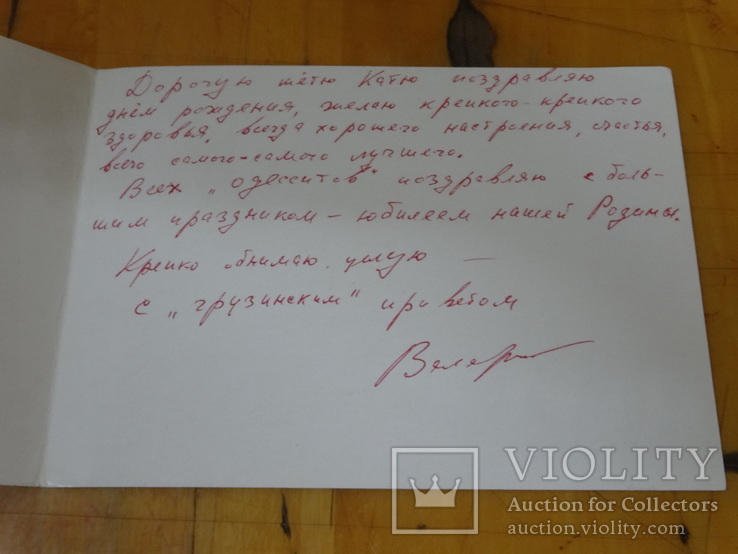 Дорогую тётю Катю поздравляю
днём рождения, желаю крепкого-крепкого
здоровья, всегда хорошего настроения, счастья,
всего самого-самого лучшего.
Всех „одесситов" поздравляю с боль-
шим праздником – юбилеем нашей Родины.
Крепко обнимаю, целую –
с „грузинским" приветом
VIOLITY
Auction for Collectors
auction.violity.com